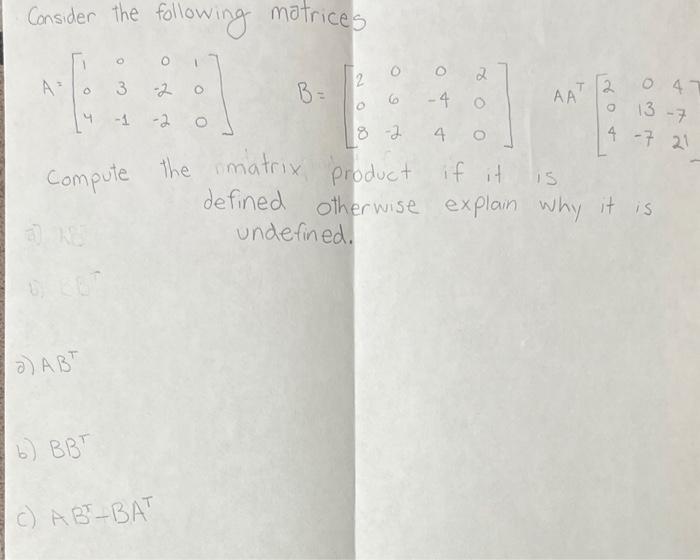 Consider the following matrices
A = [1 0 0 1
0 3 -2 0
4 -1 -2 0]
B = [2 0 0 2
0 6 -4 0
8 -2 4 0]
AAᵀ [2 0 4
0 13 -7
4 -7 21]
Compute the matrix product if it is
defined otherwise explain why it is
undefined.
a) ABᵀ
b) BBᵀ
a) ABᵀ
b) BBᵀ
c) ABᵀ-BAᵀ